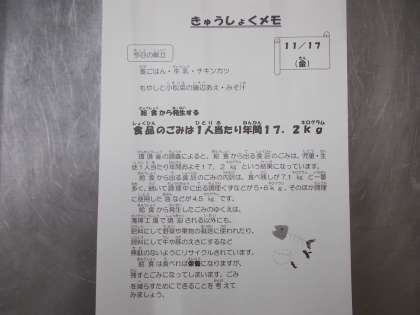 きゅうしょくメモ
11/17
(金)
今日の献立
麦ごはん・牛乳・チキンカツ
もやしと小松菜の磯辺あえ・みそ汁
給食から発生する
食品のごみは1人当たり年間17.2kg
環境省の調査によると、給食から出る食品のごみは、児童・生
徒1人当たり年間およそ17.2kgという結果になっています。
給食から出る食品のごみの内訳は、食べ残しが7.1kgと一番
多く、続いて調理中に出る調理くずなどが5.6kg、そのほか調理
に使用した油などが4.5kgです。
給食から発生したごみのゆくえは、
清掃工場で焼却される以外にも、
肥料にして野菜や果物の栽培に使われたり、
飼料にして牛や豚のえさにするなど
無駄のないようにリサイクルされています。
給食は食べれば栄養になりますが、
残すとごみになってしまいます。ごみ
を減らすためにできることを考えて
みましょう。